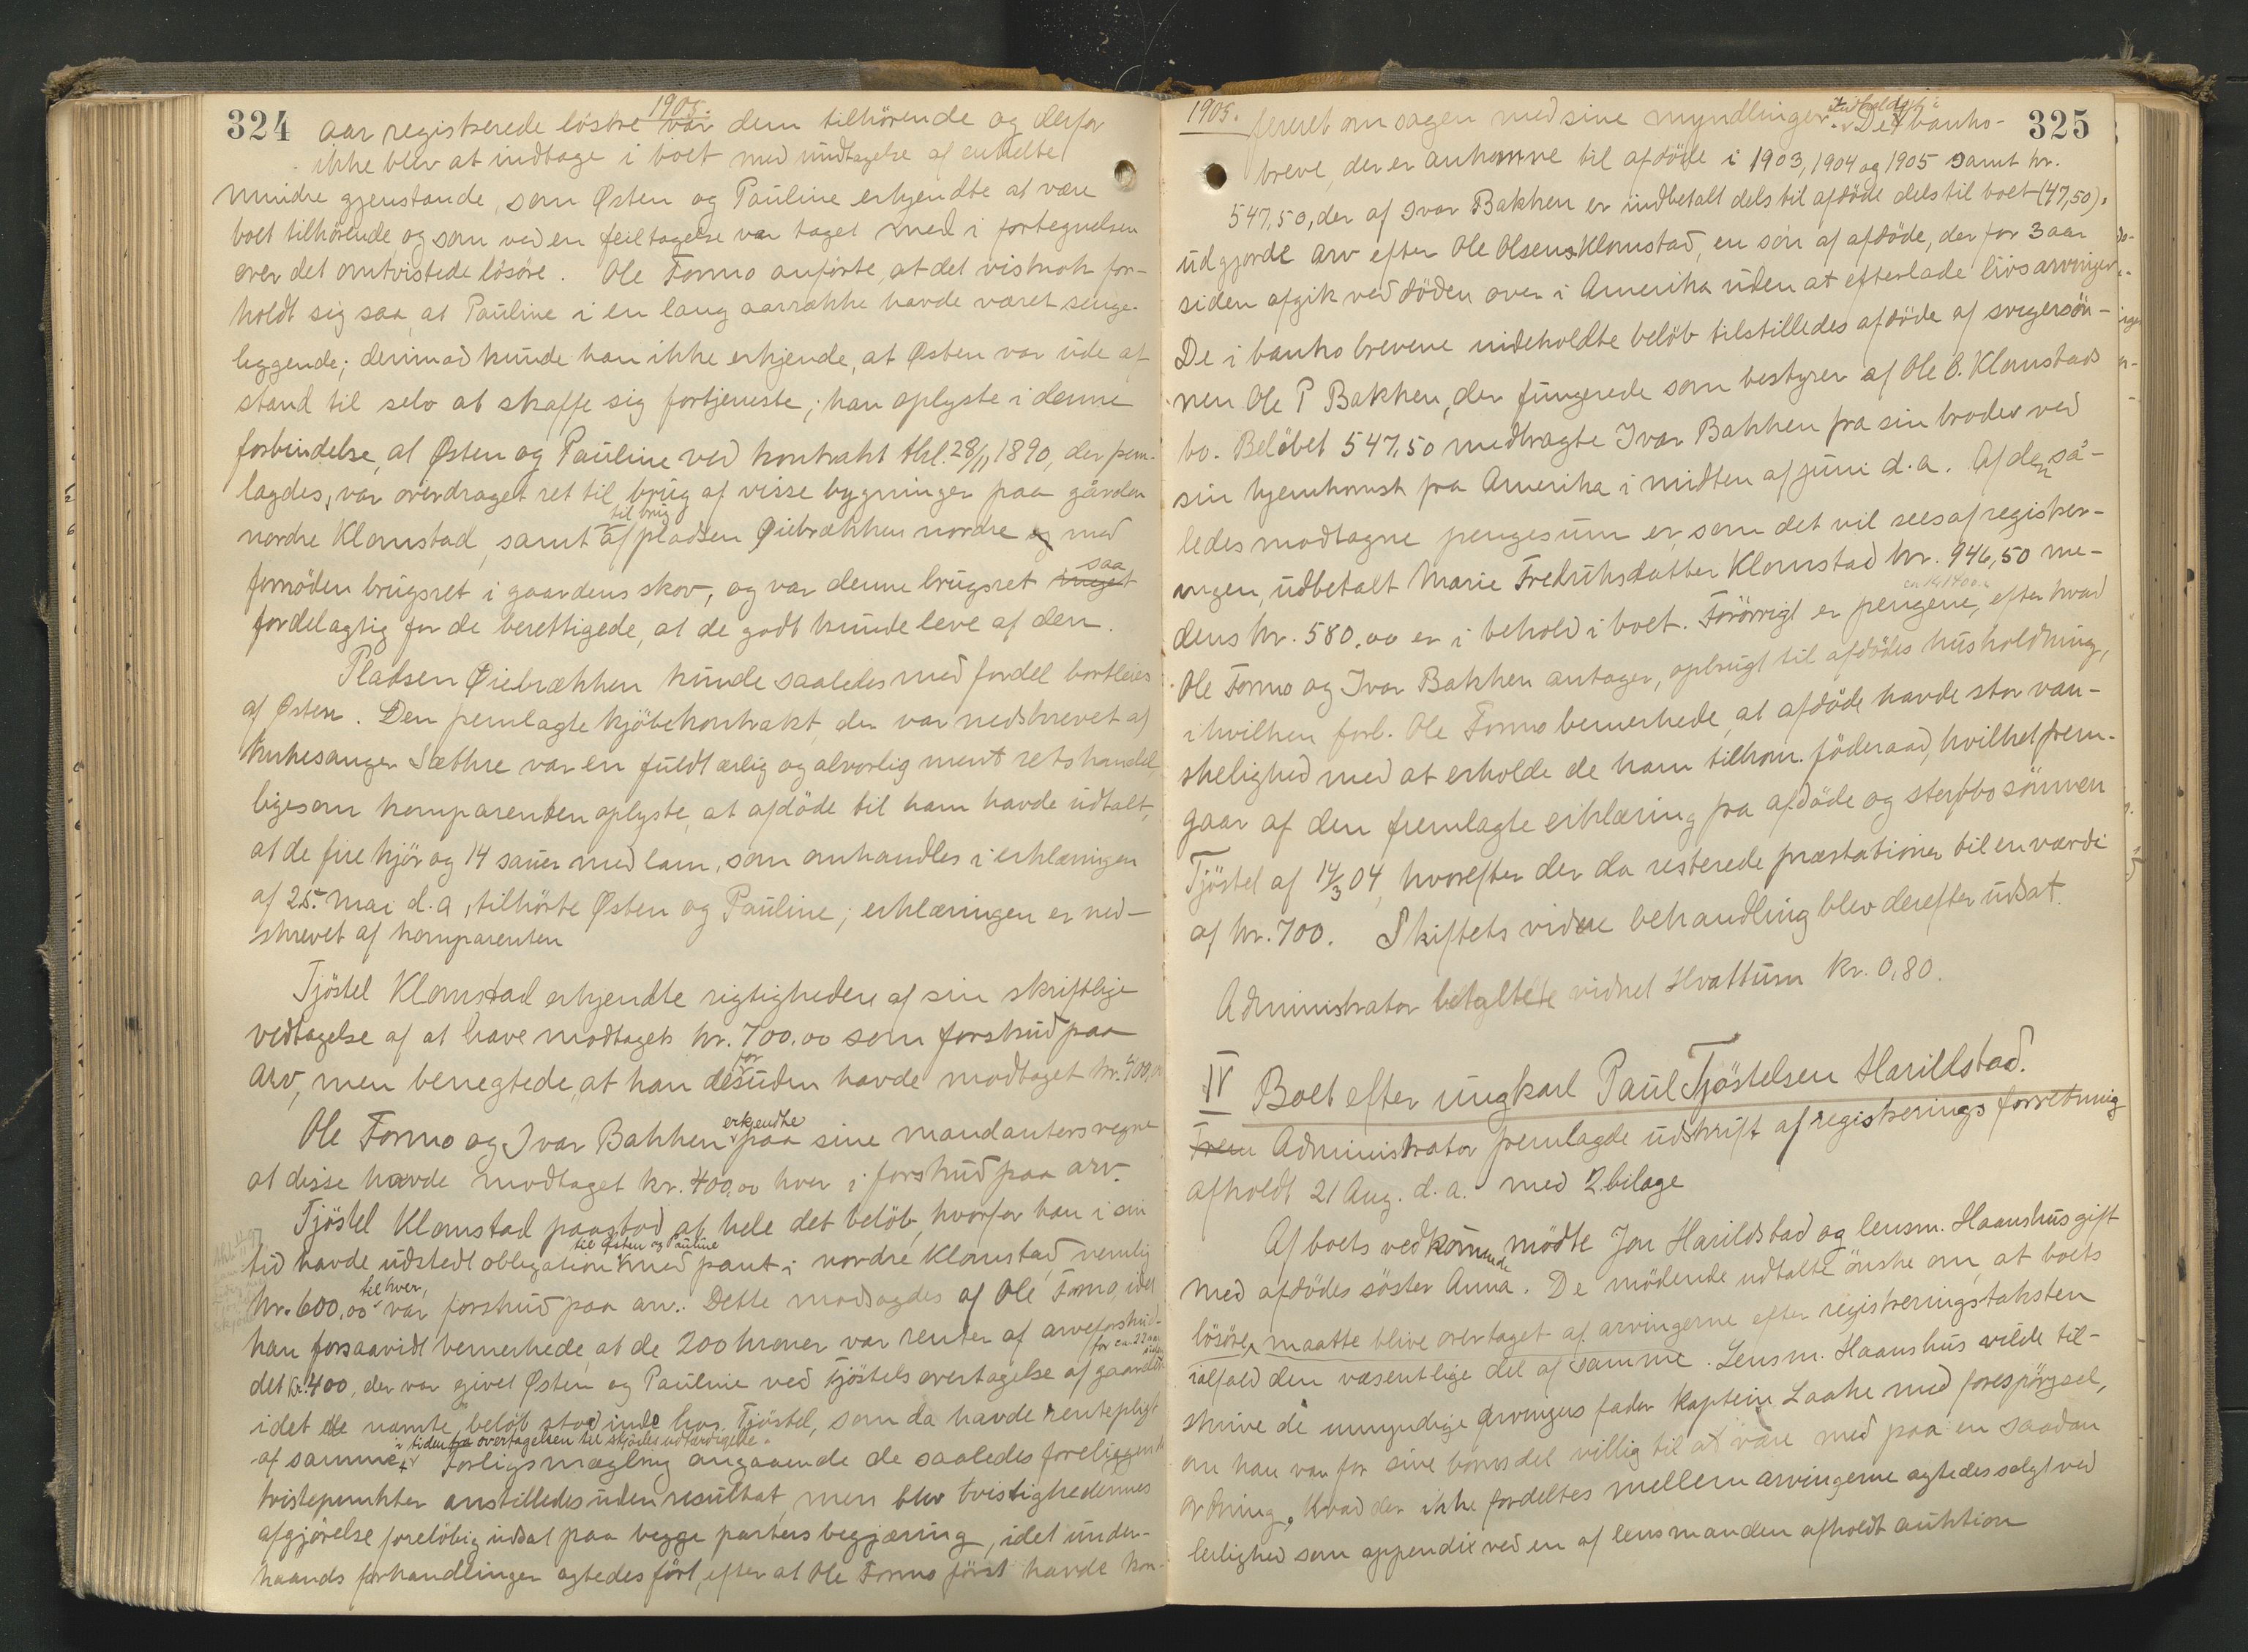 324
1905.
aar registrerede löskre var dem tilhörende og derfor
ikke blev at indtage i boet med undtagelse af enkelte
mindre gjenstande, som Østen og Pauline erkjendte at være
boet tilhörende og som ved en feiltagelse var taget med i fortegnelsen
over det omtvistede lösöre. Ole Formo anförte, at det vistnok for-
holdt sig saa, at Pauline i en lang aarrække havde været senge-
liggende; derimod kunde han ikke erkjende, at Østen var ude af
stand til selv at skaffe sig fortjeneste; han oplyste i denne
forbindelse, at Østen og Pauline ved kontrakt thl. 28/11 1890, der frem-
lagdes, var overdraget ret til brug af visse bygninger paa gården
til brug
nordre Klomstad, samt af pladsen Øiebrækken nordre og med
saa
fornöden brugsret i gaardens skov, og var denne brugsret meget
fordelagtig for de berettigede, at de godt kunde leve af den.
Pladsen Øiebrækken kunde saaledes med fordel bortleies
af Østen. Den fremlagte kjöbekontrakt, der var nedskrevet af
kirkesanger Sæthre var en fuldt ærlig og alvorlig ment retshandel,
ligesom komparenten oplyste, at afdöde til ham havde udtalt,
at de fire kjör og 14 sauer med lam, som omhandles i erklæringen
af 25. Mai d.a, tilhörte Østen og Pauline; erklæringen er ned-
skrevet af komparenten
Tjöstel Klomstad erkjendte rigtigheden af sin skriftlige
vedtagelse af at have modtaget kr. 700.00 som forskud paa
for
arv, men benegtede, at han desuden havde modtaget kr. 400,00
erkjendte
Ole Formo og Ivar Bakken paa sine mandanters vegne
at disse havde modtaget kr. 400,00 hver i forskud paa arv.
Tjöstel Klomstad paastod at hele det belöb, hvorfor han i sin
til Østen og Pauline
tid havde udstedt obligation med pant i nordre Klomstad, nemlig
til hver,
kr. 600,00 var forskud paa arv. Dette modsagdes af Ole Formo, idet
han forsaavidt bemerkede, at de 200 kroner var renter af arveforskud-
for ca 22 aar siden
det kr. 400, der var givet Østen og Pauline ved Tjöstels overtagelse af gaarden
idet de nævnte belöb stod inde hos Tjöstel, som da havde rentepligt
i tiden fra overtagelsen til skjödes udfærdigelse.
af samme. Forligsmægling angaaende de saaledes foreliggende
tvistepunkter anstilledes uden resultat, men blev tvistighedernes
afgjörelse forelöbig udsat paa begge parters begjæring, idet under-
haands forhandlinger agtedes fört, efter at Ole Formo först havde kon-
325
1905.
indholdet i
fereret om sagen med sine myndlinger. De banko-
breve, der er ankomne til afdöde i 1903, 1904 og 1905 samt kr.
547,50, der af Ivar Bakken er indbetalt dels til afdöde dels til boet (47,50).
udgjorde arv efter Ole Olsen Klomstad, en sön af afdöde, der for 3 aar
siden afgik ved döden over i Amerika uden at efterlade livsarvinger.
De i bankobrevene indeholdte belöb tilstilledes afdöde af svigersön-
nen Ole P Bakken, der fungerede som bestyrer af Ole O. Klomstads
bo. Belöbet 547,50 medbragte Ivar Bakken fra sin broder ved
sin hjemkomst fra Amerika i midten af juni d.a. Af den så-
ledes modtagne pengesum er, som det vil sees af registrer-
ingen, udbetalt Marie Fredriksdatter Klomstad kr. 946,50 me-
dens kr. 580.00 er i behold i boet. Forövrigt er pengene, efter hvad
Ole Formo og Ivar Bakken antager, opbrugt til afdödes husholdning,
i hvilken forb. Ole Formo bemerkede, at afdöde havde stor van-
skelighed med at erholde de ham tilkom. föderaad, hvilket frem-
gaar af den fremlagte erklæring fra afdöde og sterbbosönnen
Tjöstel af 14/3 04, hvorefter der da resterede præstationer til en værdi
af kr. 700. Skiftets videre behandling blev derefter udsat.
Administrator betaltede vidnet Hvattum kr. 0,80.
IV Boet efter ungkarl Paul Tjöstelsen Harildstad.
Frem Administrator fremlagde udskrift af registreringsforretning
afholdt 21 Aug. d.a. med 2 bilage
Af boets vedkommende mödte Jon Harildstad og lensm. Haanshus gift
med afdödes söster Anna. De mödende udtalte önske om, at boets
lösöre, maatte blive overtaget af arvingerne efter registreringstaksten
ialfald den væsentlige del af samme. Lensm. Haanshus vilde til-
skrive de umyndige arvingers fader kaptein Laake med forespörgsel,
om han var for sine börns del villig til at være med paa en saadan
ordning. Hvad der ikke fordeltes mellem arvingerne agtedes solgt ved
leilighed som appendix ved en af lensmanden afholdt auktion